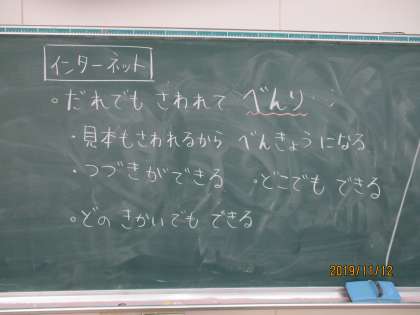 インターネット
○だれでも さわれて べんり…
・見本もさわれるから べんきょうになる
・つづきができる ・どこでも できる
○どの きかいでも できる
2019/11/12